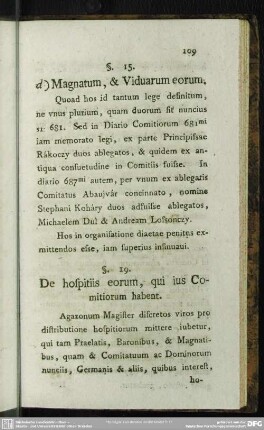 109
§. 15.
d) Magnatum, & Viduarum eorum.
Quoad hos id tantum lege definitum,
ne vnus plurium, quam duorum sit nuncius
51: 681. Sed in Diario Comitiorum 681mi
iam memorato legi, ex parte Principissae
Rákoczy duos ablegatos, & quidem ex an-
tiqua consuetudine in Comitiis fuisse. In
diario 687mi autem, per vnum ex ablegatis
Comitatus Abaujvár concinnato, nomine
Stephani Koháry duos adfuisse ablegatos,
Michaelem Dul & Andream Losonczy.
Hos in organisatione diaetae penitus ex-
mittendos esse, iam superius insinuavi.
§. 19.
De hospitiis eorum, qui ius Co-
mitiorum habent.
Agazonum Magister discretos viros pro
distributione hospitiorum mittere iubetur,
qui tam Praelatis, Baronibus, & Magnati-
bus, quam & Comitatuum ac Dominorum
nunciis, Germanis & aliis, quibus interest,
ho-